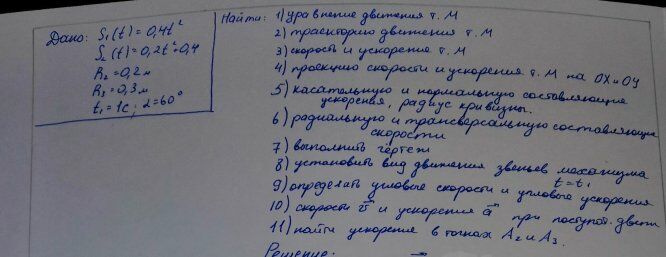 Дано: S₁(t) = 0,4t²
S₂(t) = 0,2t²+0,4
R₂ = 0,2 м
R₃ = 0,3 м
t₁ = 1c; α = 60°
Найти: 1) уравнение движения т. М
2) траекторию движения т. М
3) скорость и ускорение т. М
4) проекцию скорости и ускорения т. М на ОХ и ОУ
5) касательную и нормальную составляющие
ускорения, радиус кривизны.
6) радиальную и трансверсальную составляющие
скорости
7) выполнить чертеж
8) установить вид движения звеньев механизма
t=t₁
9) определить угловые скорости и угловые ускорения
10) скорости v⃗ и ускорения a⃗ при поступат. движ
11) найти ускорение в точках А₂ и А₃.
Решение: